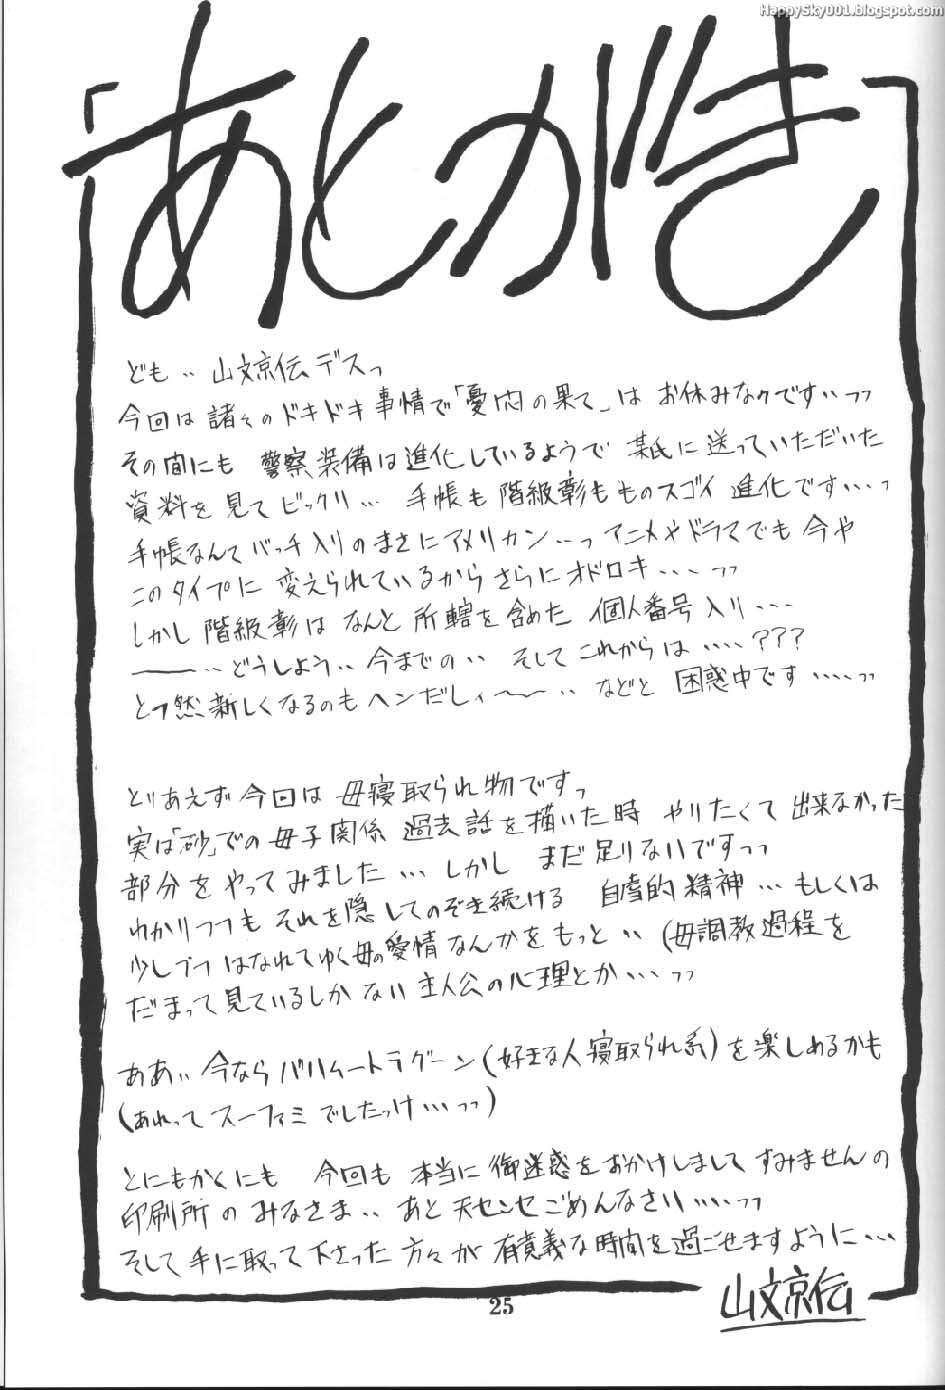 HappySky001.blogspot.com
あとがき
ども‥山文京伝デスっ
今回は諸々のドキドキ事情で「憂悶の果て」はお休みなのですぃっっ
その間にも 警察装備は進化しているようで 某氏に送っていただいた
資料を見てビックリ… 手帳も階級彰もものスゴイ進化です…っ
手帳なんてバッチ入りのまさにアメリカン…っ アニメやドラマでも今や
このタイプに変えられているからさらにオドロキ…っっ
しかし階級彰はなんと所轄を含めた 個人番号入り…
――‥どうしよう‥今までの‥ そしてこれからは‥‥???
とつ然新しくなるのもヘンだしィ〜〜‥などと 困惑中です‥‥っっ
とりあえず今回は母寝取られ物ですっ
実は「砂」での母子関係過去話を描いた時 やりたくて出来なかった
部分をやってみました… しかし まだ足りないですっっ
わかりつつもそれを隠してのぞき続ける 自虐的精神…もしくは
少しづつはなれてゆく母の愛情なんかをもっと‥ (母調教過程を
だまって見ているしかない主人公の心理とか…っっ
ああ‥今ならバハムートラグーン(好きな人寝取られ系)を楽しめるかも
(あれってスーファミでしたっけ…っっ)
とにもかくにも 今回も 本当に御迷惑をおかけしましてすみませんの
印刷所のみなさま‥ あと天センセごめんなさい‥‥っっ
そして手に取って下さった方々が有意義な時間を過ごせますように…
山文京伝
25